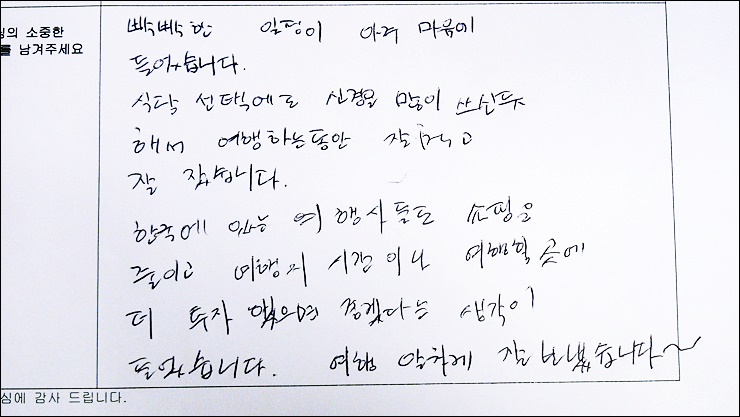 님의 소중한
를 남겨주세요
빡빡한 일정이 아주 마음에
들었습니다.
식당 선택에도 신경을 많이 쓰신듯
해서 여행하는동안 잘 먹고
잘 잤습니다.
한국에 있는 여행사들도 쇼핑을
줄이고 여행지 시간이나 여행할 곳에
더 투자 했으면 좋겠다는 생각이
들었습니다. 여행 알차게 잘 보냈습니다~
심에 감사 드립니다.